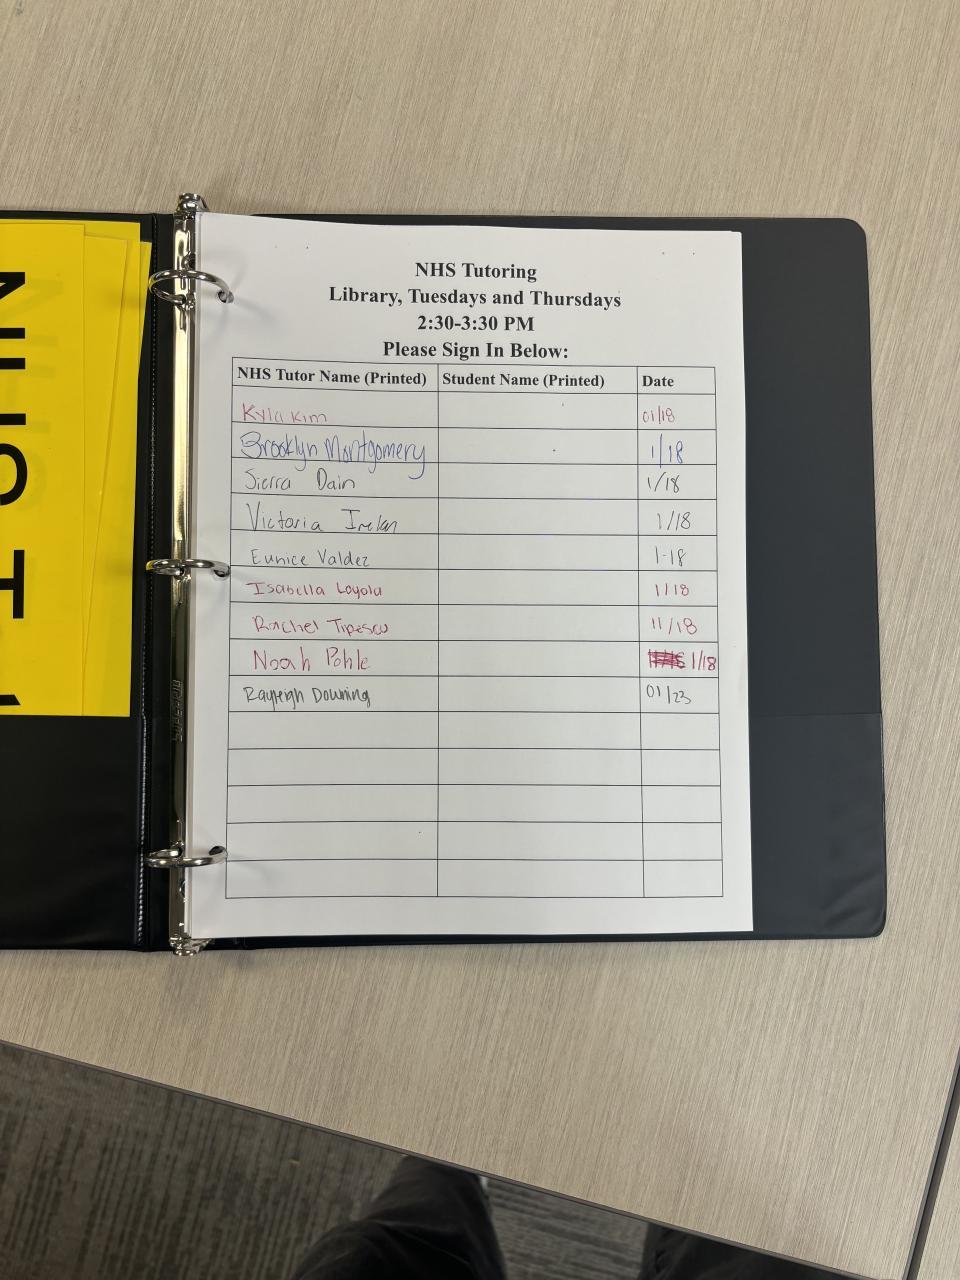 NHS Tutoring
Library, Tuesdays and Thursdays
2:30-3:30 PM
Please Sign In Below:
NHS Tutor Name (Printed) Student Name (Printed) Date
Kyla Kim 01/18
Brooklyn Montgomery 1/18
Sierra Dain 1/18
Victoria Irelan 1/18
Eunice Valdez 1-18
Isabella Loyola 1/18
Rachel Tipescu 11/18
Noah Pohle 1/18
Rayleigh Downing 01/23